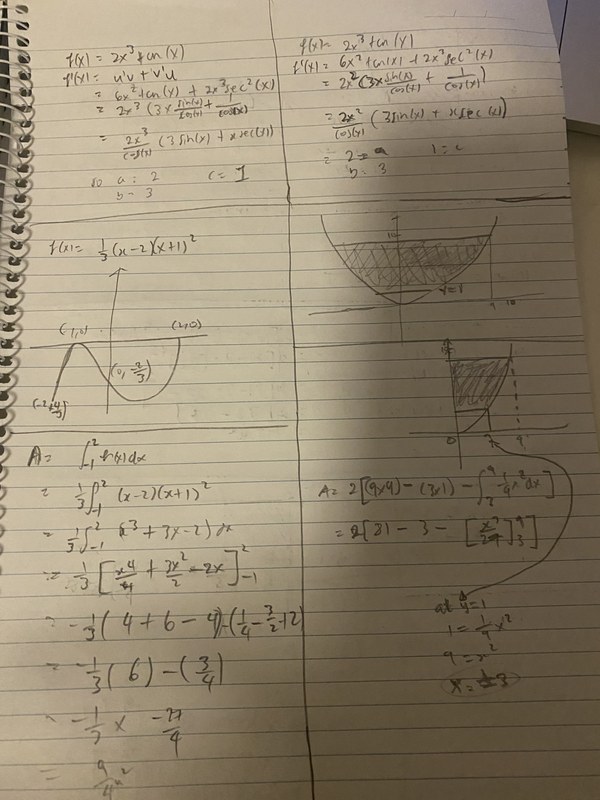 f(x) = 2x³ tan(x)
f'(x) = u'v + v'u
= 6x² tan(x) + 2x³ sec²(x)
= 2x³ (3x sin(x)/cos(x) + 1/cos(x))
= 2x³/cos(x) (3 sin(x) + x sec(x))
so a = 2 c = 1
b = 3
f(x) = 2x³ tan(x)
f'(x) = 6x² tan(x) + 2x³ sec²(x)
= 2x² (3x sin(x)/cos(x) + 1/cos(x))
= 2x²/cos(x) (3 sin(x) + x sec(x))
= 2 = a 1 = c
b = 3
f(x) = 1/3 (x-2)(x+1)²
(-1,0) (2,0)
(0, -2/3)
y=1
9 10
0 3 9
A = ∫₋₁² h(x) dx
= 1/3 ∫₋₁² (x-2)(x+1)²
= 1/3 ∫₋₁² x³ + 3x - 2) dx
= 1/3 [x⁴/4 + 3x²/2 - 2x]₋₁²
= -1/3 ( 4 + 6 - 4) - (1/4 - 3/2 + 2)
= -1/3 ( 6) - (3/4)
= -1/3 × -27/4
= 9/4 u²
A = 2[(9×9) - (3×1) - ∫₃⁹ 1/9 x² dx]
= 2[81 - 3 - [x³/27]₃⁹]
at y=1
1 = 1/9 x²
9 = x²
x = ±3